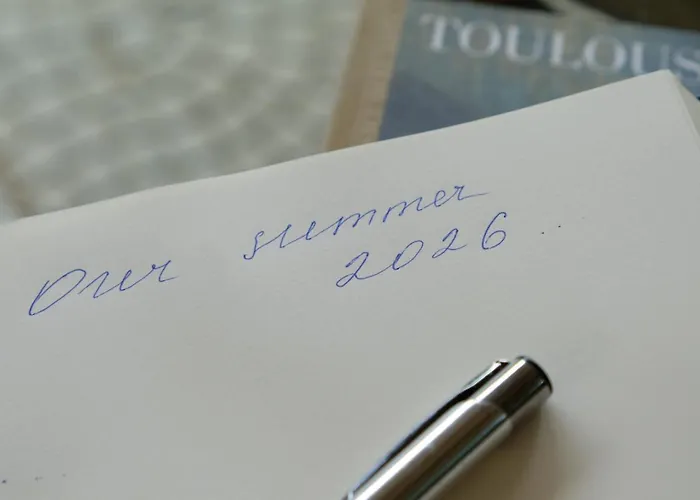 TOULOUS
Our summer
2026 ..